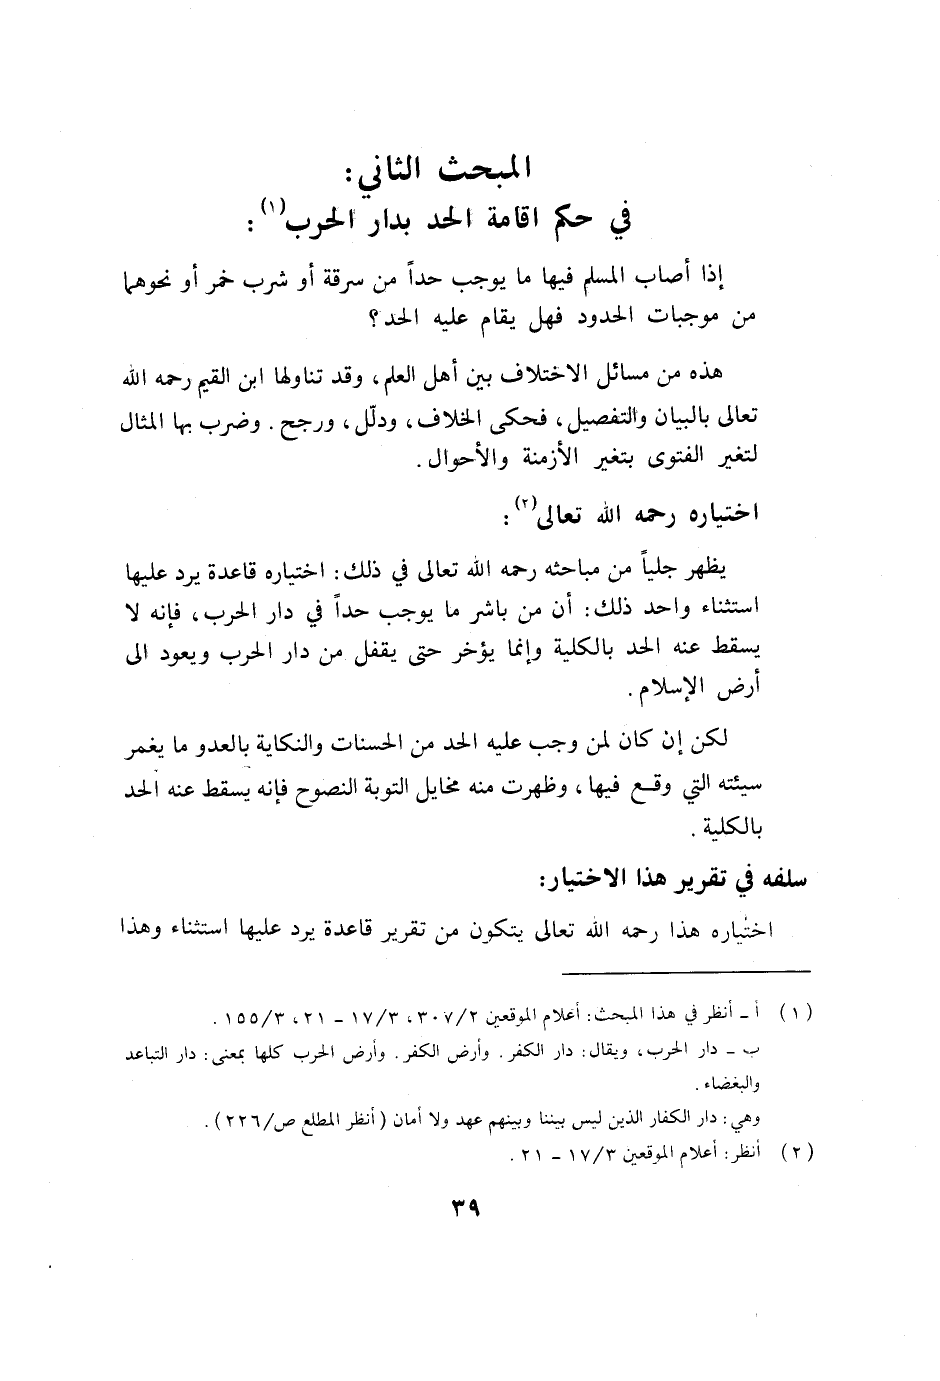 المبحث الثاني:
في حكم اقامة الحد بدار الحرب(١):
إذا أصاب المسلم فيها ما يوجب حداً من سرقة أو شرب خمر أو نحوهما
من موجبات الحدود فهل يقام عليه الحد؟
هذه من مسائل الاختلاف بين أهل العلم، وقد تناولها ابن القيم رحمه الله
تعالى بالبيان والتفصيل، فحكى الخلاف، ودلّل، ورجح. وضرب بها المثال
لتغير الفتوى بتغير الأزمنة والأحوال.
اختياره رحمه الله تعالى(٢):
يظهر جلياً من مباحثه رحمه الله تعالى في ذلك: اختياره قاعدة يرد عليها
استثناء واحد ذلك: أن من باشر ما يوجب حداً في دار الحرب، فإنه لا
يسقط عنه الحد بالكلية وإنما يؤخر حتى يقفل من دار الحرب ويعود الى
أرض الإسلام.
لكن إن كان لمن وجب عليه الحد من الحسنات والنكاية بالعدو ما يغمر
سيئته التي وقع فيها، وظهرت منه مخايل التوبة النصوح فإنه يسقط عنه الحد
بالكلية.
سلفه في تقرير هذا الاختيار:
اختياره هذا رحمه الله تعالى يتكون من تقرير قاعدة يرد عليها استثناء وهذا
(١) أ ـ أنظر في هذا المبحث: أعلام الموقعين ٣٠٧/٢، ١٧/٣ ـ ٢١، ١٥٥/٣.
ب ـ دار الحرب، ويقال: دار الكفر. وأرض الكفر. وأرض الحرب كلها بمعنى: دار التباعد
والبغضاء.
وهي: دار الكفار الذين ليس بيننا وبينهم عهد ولا أمان (أنظر المطلع ص/٢٢٦).
(٢) أنظر: أعلام الموقعين ١٧/٣ ـ ٢١.
٣٩